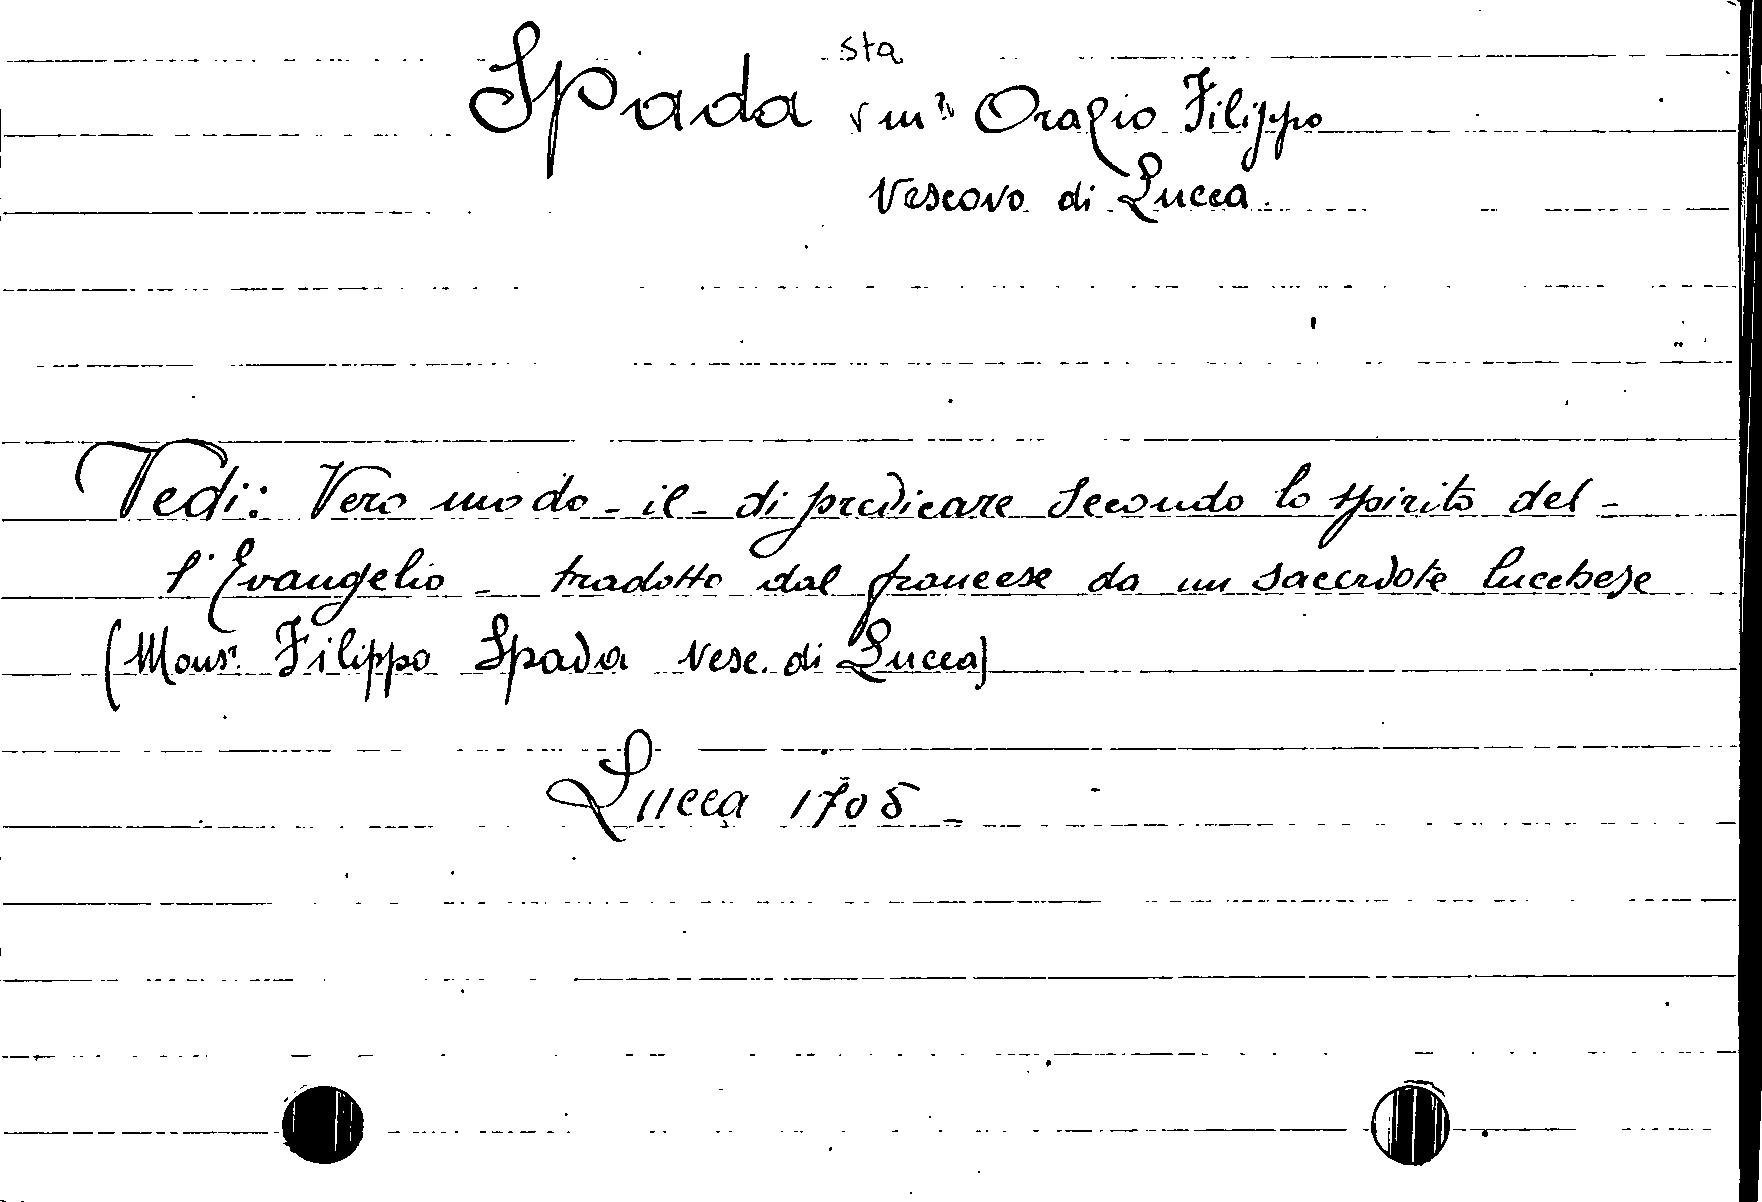 sta
Spada Orazio Filippo
Vescovo di Lucca.
Vedi: Vero modo - il - di predicare secondo lo spirito del-
l'Evangelio - tradotto dal francese da un sacerdote lucchese
(Monsr. Filippo Spada Vesc. di Lucca)
Lucca 1705 -